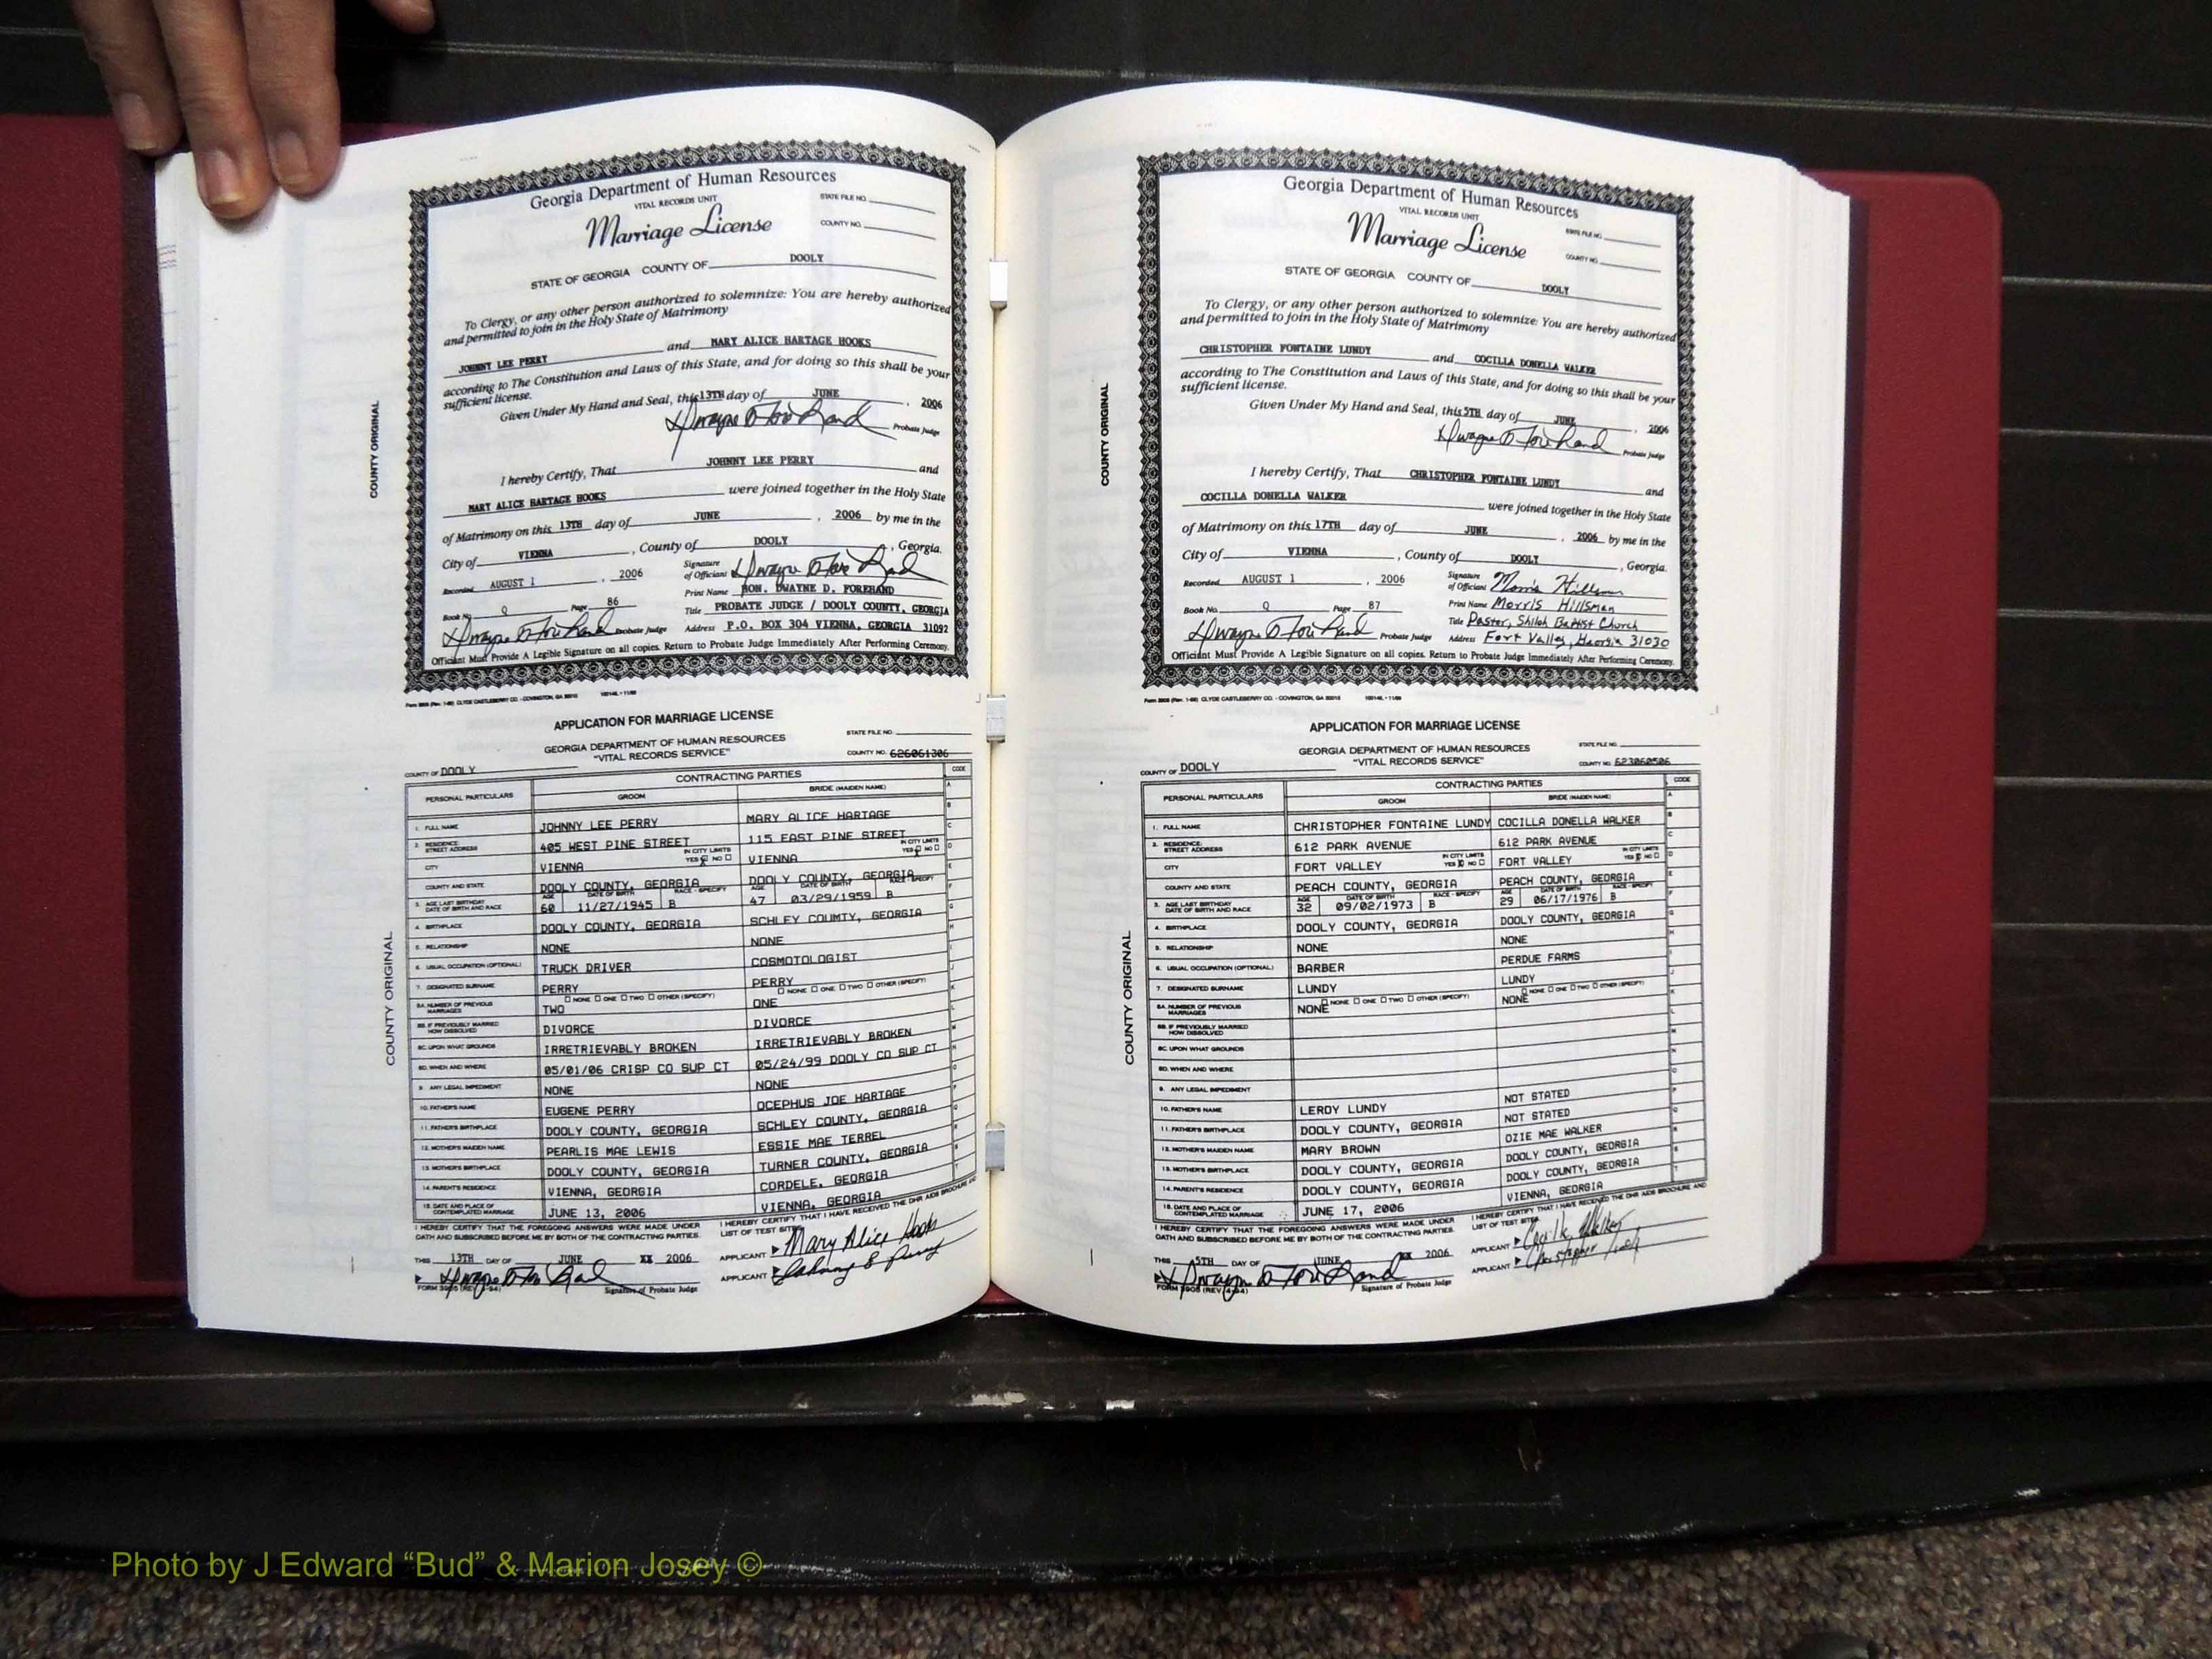 Georgia Department of Human Resources
VITAL RECORDS UNIT
STATE FILE NO.
Marriage License
COUNTY NO.
STATE OF GEORGIA COUNTY OF DOOLY
To Clergy, or any other person authorized to solemnize: You are hereby authorized
and permitted to join in the Holy State of Matrimony
JOHNNY LEE PERRY and MARY ALICE HARTAGE HOOKS
according to The Constitution and Laws of this State, and for doing so this shall be your
sufficient license.
Given Under My Hand and Seal, this 13TH day of JUNE , 2006
Probate Judge
I hereby Certify, That JOHNNY LEE PERRY and
MARY ALICE HARTAGE HOOKS were joined together in the Holy State
of Matrimony on this 13TH day of JUNE , 2006 by me in the
City of VIENNA , County of DOOLY , Georgia.
Recorded AUGUST 1 , 2006 Signature of Officiant
Print Name HON. DWAYNE D. FOREHAND
Book No. Q Page 86 Title PROBATE JUDGE / DOOLY COUNTY, GEORGIA
Probate Judge Address P.O. BOX 304 VIENNA, GEORGIA 31092
Officiant Must Provide A Legible Signature on all copies. Return to Probate Judge Immediately After Performing Ceremony.
COUNTY ORIGINAL
APPLICATION FOR MARRIAGE LICENSE
GEORGIA DEPARTMENT OF HUMAN RESOURCES
"VITAL RECORDS SERVICE"
STATE FILE NO.
COUNTY NO. 626061306
COUNTY OF DOOLY
CONTRACTING PARTIES CODE
PERSONAL PARTICULARS GROOM BRIDE (MAIDEN NAME)
1. FULL NAME JOHNNY LEE PERRY MARY ALICE HARTAGE
2. RESIDENCE: STREET ADDRESS 405 WEST PINE STREET 115 EAST PINE STREET
CITY VIENNA IN CITY LIMITS YES NO VIENNA IN CITY LIMITS YES NO
COUNTY AND STATE DOOLY COUNTY, GEORGIA DOOLY COUNTY, GEORGIA
3. AGE LAST BIRTHDAY DATE OF BIRTH AND RACE AGE 60 DATE OF BIRTH 11/27/1945 RACE - SPECIFY B AGE 47 DATE OF BIRTH 03/29/1959 RACE - SPECIFY B
4. BIRTHPLACE DOOLY COUNTY, GEORGIA SCHLEY COUMTY, GEORGIA
5. RELATIONSHIP NONE NONE
6. USUAL OCCUPATION (OPTIONAL) TRUCK DRIVER COSMOTOLOGIST
7. DESIGNATED SURNAME PERRY PERRY
8A. NUMBER OF PREVIOUS MARRIAGES NONE ONE TWO OTHER (SPECIFY) TWO NONE ONE TWO OTHER (SPECIFY) ONE
8B. IF PREVIOUSLY MARRIED HOW DISSOLVED DIVORCE DIVORCE
8C. UPON WHAT GROUNDS IRRETRIEVABLY BROKEN IRRETRIEVABLY BROKEN
8D. WHEN AND WHERE 05/01/06 CRISP CO SUP CT 05/24/99 DOOLY CO SUP CT
9. ANY LEGAL IMPEDIMENT NONE NONE
10. FATHER'S NAME EUGENE PERRY OCEPHUS JOE HARTAGE
11. FATHER'S BIRTHPLACE DOOLY COUNTY, GEORGIA SCHLEY COUNTY, GEORGIA
12. MOTHER'S MAIDEN NAME PEARLIS MAE LEWIS ESSIE MAE TERREL
13. MOTHER'S BIRTHPLACE DOOLY COUNTY, GEORGIA TURNER COUNTY, GEORGIA
14. PARENT'S RESIDENCE VIENNA, GEORGIA CORDELE, GEORGIA
15. DATE AND PLACE OF CONTEMPLATED MARRIAGE JUNE 13, 2006 VIENNA, GEORGIA
I HEREBY CERTIFY THAT THE FOREGOING ANSWERS WERE MADE UNDER
OATH AND SUBSCRIBED BEFORE ME BY BOTH OF THE CONTRACTING PARTIES.
I HEREBY CERTIFY THAT I HAVE RECEIVED THE DHR AIDS BROCHURE AND
LIST OF TEST SITES.
THIS 13TH DAY OF JUNE XX 2006
APPLICANT Mary Alice Hooks
APPLICANT
Signature of Probate Judge
COUNTY ORIGINAL
Georgia Department of Human Resources
VITAL RECORDS UNIT
STATE FILE NO.
Marriage License
COUNTY NO.
STATE OF GEORGIA COUNTY OF DOOLY
To Clergy, or any other person authorized to solemnize: You are hereby authorized
and permitted to join in the Holy State of Matrimony
CHRISTOPHER FONTAINE LUNDY and COCILLA DONELLA WALKER
according to The Constitution and Laws of this State, and for doing so this shall be your
sufficient license.
Given Under My Hand and Seal, this 5TH day of JUNE , 2006
Probate Judge
I hereby Certify, That CHRISTOPHER FONTAINE LUNDY and
COCILLA DONELLA WALKER were joined together in the Holy State
of Matrimony on this 17TH day of JUNE , 2006 by me in the
City of VIENNA , County of DOOLY , Georgia.
Recorded AUGUST 1 , 2006 Signature of Officiant Morris Hillsman
Print Name Morris Hillsman
Book No. Q Page 87 Title Pastor, Shiloh Baptist Church
Probate Judge Address Fort Valley, Georgia 31030
Officiant Must Provide A Legible Signature on all copies. Return to Probate Judge Immediately After Performing Ceremony.
COUNTY ORIGINAL
APPLICATION FOR MARRIAGE LICENSE
GEORGIA DEPARTMENT OF HUMAN RESOURCES
"VITAL RECORDS SERVICE"
STATE FILE NO.
COUNTY NO. 623060506
COUNTY OF DOOLY
CONTRACTING PARTIES CODE
PERSONAL PARTICULARS GROOM BRIDE (MAIDEN NAME)
1. FULL NAME CHRISTOPHER FONTAINE LUNDY COCILLA DONELLA WALKER
2. RESIDENCE: STREET ADDRESS 612 PARK AVENUE 612 PARK AVENUE
CITY FORT VALLEY IN CITY LIMITS YES NO FORT VALLEY IN CITY LIMITS YES NO
COUNTY AND STATE PEACH COUNTY, GEORGIA PEACH COUNTY, GEORGIA
3. AGE LAST BIRTHDAY DATE OF BIRTH AND RACE AGE 32 DATE OF BIRTH 09/02/1973 RACE - SPECIFY B AGE 29 DATE OF BIRTH 06/17/1976 RACE - SPECIFY B
4. BIRTHPLACE DOOLY COUNTY, GEORGIA DOOLY COUNTY, GEORGIA
5. RELATIONSHIP NONE NONE
6. USUAL OCCUPATION (OPTIONAL) BARBER PERDUE FARMS
7. DESIGNATED SURNAME LUNDY LUNDY
8A. NUMBER OF PREVIOUS MARRIAGES NONE ONE TWO OTHER (SPECIFY) NONE NONE ONE TWO OTHER (SPECIFY) NONE
8B. IF PREVIOUSLY MARRIED HOW DISSOLVED
8C. UPON WHAT GROUNDS
8D. WHEN AND WHERE
9. ANY LEGAL IMPEDIMENT
10. FATHER'S NAME LEROY LUNDY NOT STATED
11. FATHER'S BIRTHPLACE DOOLY COUNTY, GEORGIA NOT STATED
12. MOTHER'S MAIDEN NAME MARY BROWN OZIE MAE WALKER
13. MOTHER'S BIRTHPLACE DOOLY COUNTY, GEORGIA DOOLY COUNTY, GEORGIA
14. PARENT'S RESIDENCE DOOLY COUNTY, GEORGIA DOOLY COUNTY, GEORGIA
15. DATE AND PLACE OF CONTEMPLATED MARRIAGE JUNE 17, 2006 VIENNA, GEORGIA
I HEREBY CERTIFY THAT THE FOREGOING ANSWERS WERE MADE UNDER
OATH AND SUBSCRIBED BEFORE ME BY BOTH OF THE CONTRACTING PARTIES.
I HEREBY CERTIFY THAT I HAVE RECEIVED THE DHR AIDS BROCHURE AND
LIST OF TEST SITES.
THIS 5TH DAY OF JUNE XX 2006
APPLICANT
APPLICANT
Signature of Probate Judge
COUNTY ORIGINAL
Photo by J Edward “Bud” & Marion Josey ©